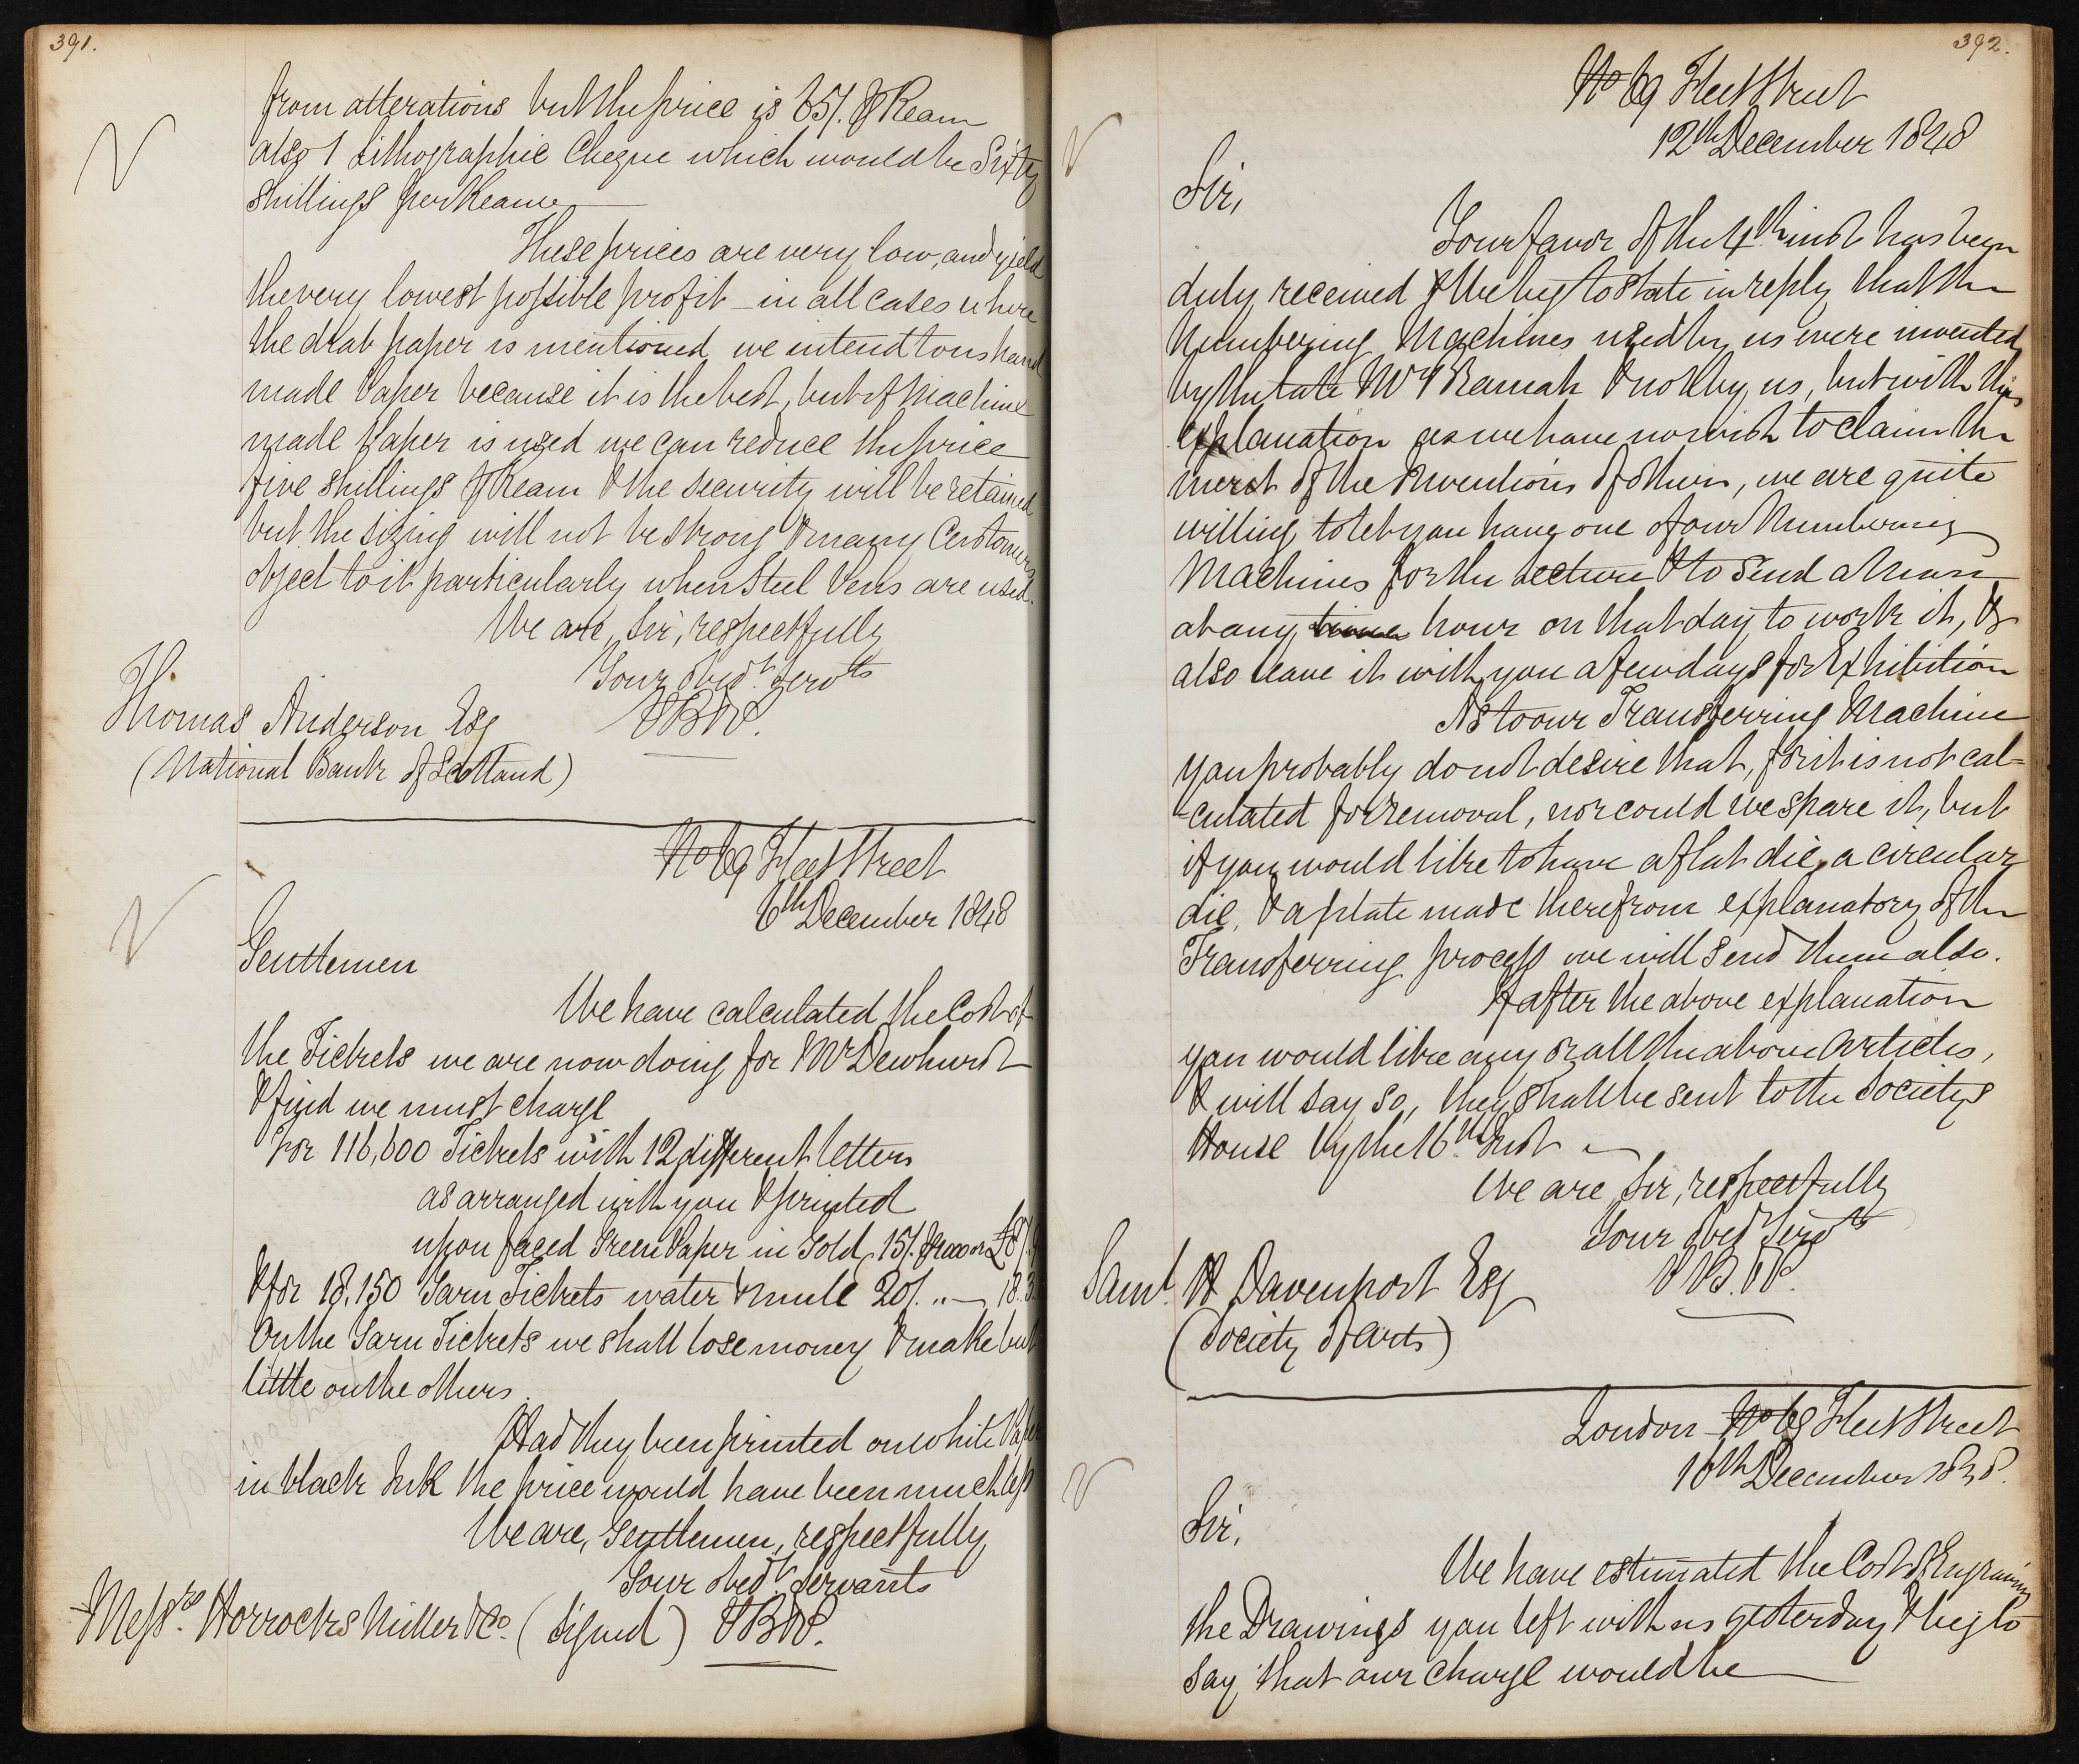 391.
from alterations but the price is 65/. ₱ Ream
also 1 Lithographic Cheque which would be Sixty
shillings per Reame
These prices are very low, and yield
the very lowest possible profit – in all cases where
the drab paper is mentioned we intend to us hand
made Paper because it is the best, but if Machine
made paper is used we can reduce the price
five shillings ₱ Ream & the security will be retained
but the sizing will not be strong & many Customers
object to it particularly when Steel Pens are used.
We are, Sir, respectfully
Your obedt. Servts
PB&P.
Thomas Anderson Esq
(National Bank of Scotland)
No 69 Fleet Street
6th December 1848
Gentlemen
We have calculated the Cost of
the Tickets we are now doing for Mr Dewhurst
& find we must charge
For 116,600 Tickets with 12 different letters
as arranged with you & printed
upon faced Green Paper in Gold, 15/. ₱ 1000 or £87.9
& for 18,150 Yarn Tickets water & mule 20/. ,, — 18.3
On the Yarn Tickets we shall lose money & make but
little on the others.
Had they been printed on white Paper
in black Ink the price would have been much less
We are, Gentlemen, respectfully,
Your obedt. Servants
Messrs. Horrocks Miller & Co. (signed) PB&P.
392.
No 69 Fleet Street
12th December 1848
Sir,
Your favor of the 4th inst has been
duly received & We beg to state in reply that the
Numbering Machines used by us were invented
by the late Mr J Bramah & not by us, but with this
explanation as we have no wish to claim the
merit of the Inventions of others, we are quite
willing to let you have one of our Numbering
Machines for the Lecture & to send a Man
at any time hour on that day to work it, &
also leave it with you a few days for Exhibition
As to our Transferring Machine
you probably do not desire that, for it is not cal=
-culated for removal, nor could we spare it, but
if you would like to have a flat die, a circular
die, & a plate made therefrom explanatory of the
Transferring process we will send them also.
If after the above explanation
you would like any or all the above Articles,
& will say so, they shall be sent to the Societys
House by the 16th Inst —
We are, Sir, respectfully
Your obedt Servts
PB.&P.
Saml. H Davenport Esq
(Society of Arts)
London No 69 Fleet Street
16th December 1848.
Sir,
We have estimated the Cost of Engraving
the Drawings you left with us yesterday & beg to
say that our Charge would be